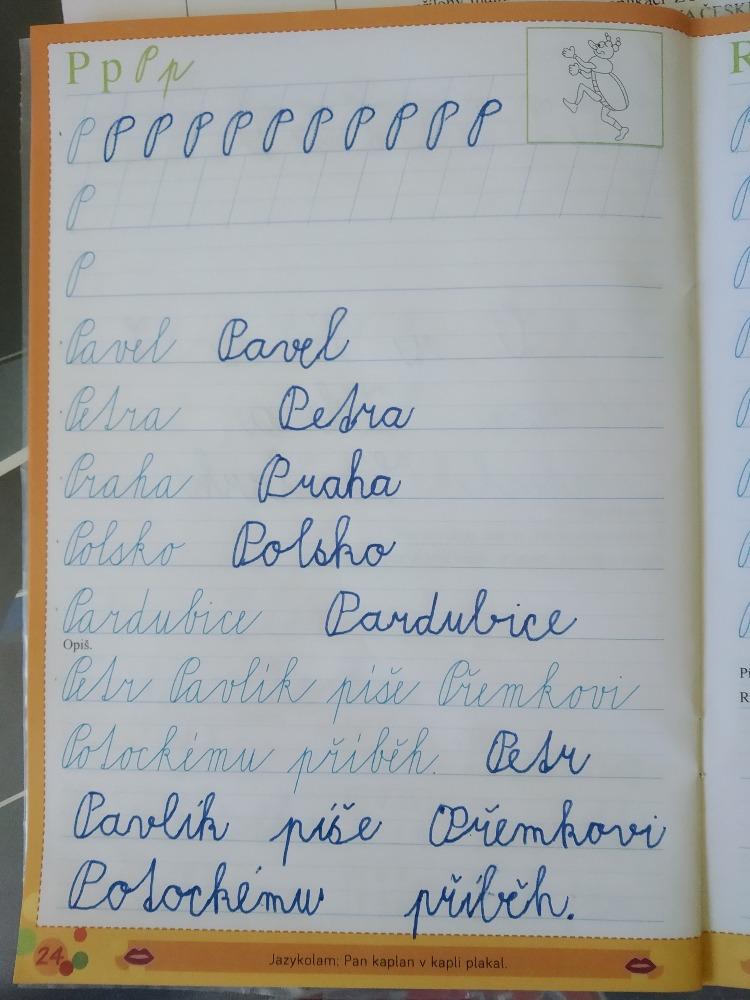 P p P p
P P P P P P P P P P P
P
P
Pavel Pavel
Petra Petra
Praha Praha
Polsko Polsko
Pardubice Pardubice
Opiš.
Petr Pavlík píše Přemkovi
Potockému příběh. Petr
Pavlík píše Přemkovi
Potockému příběh.
24 Jazykolam: Pan kaplan v kapli plakal.